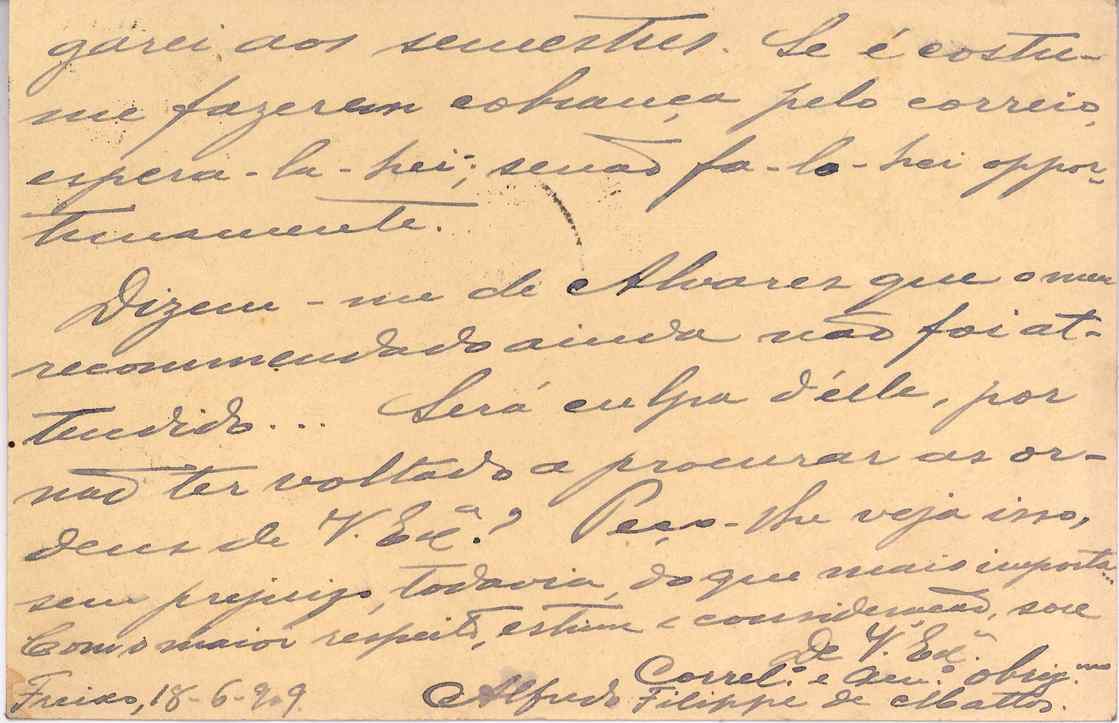 garei aos semestres. Se é costu-
me fazerem cobrança pelo correio,
espera-la-hei; senão fa-lo-hei oppor-
tunamente.
Dizem-me de Alvares que o meu
recommendado ainda não foi at-
tendido... Será culpa d'elle, por
não ter voltado a procurar as or-
dens de V. Exª? Peço-lhe veja isso,
sem prejuizo, todavia, do que mais importa.
Com o maior respeito, estima e consideração, sou
De V. Exª.
Correl.º e am.º obrig.mo
Freixo, 18-6-909. Alfredo Filippe de Mattos.